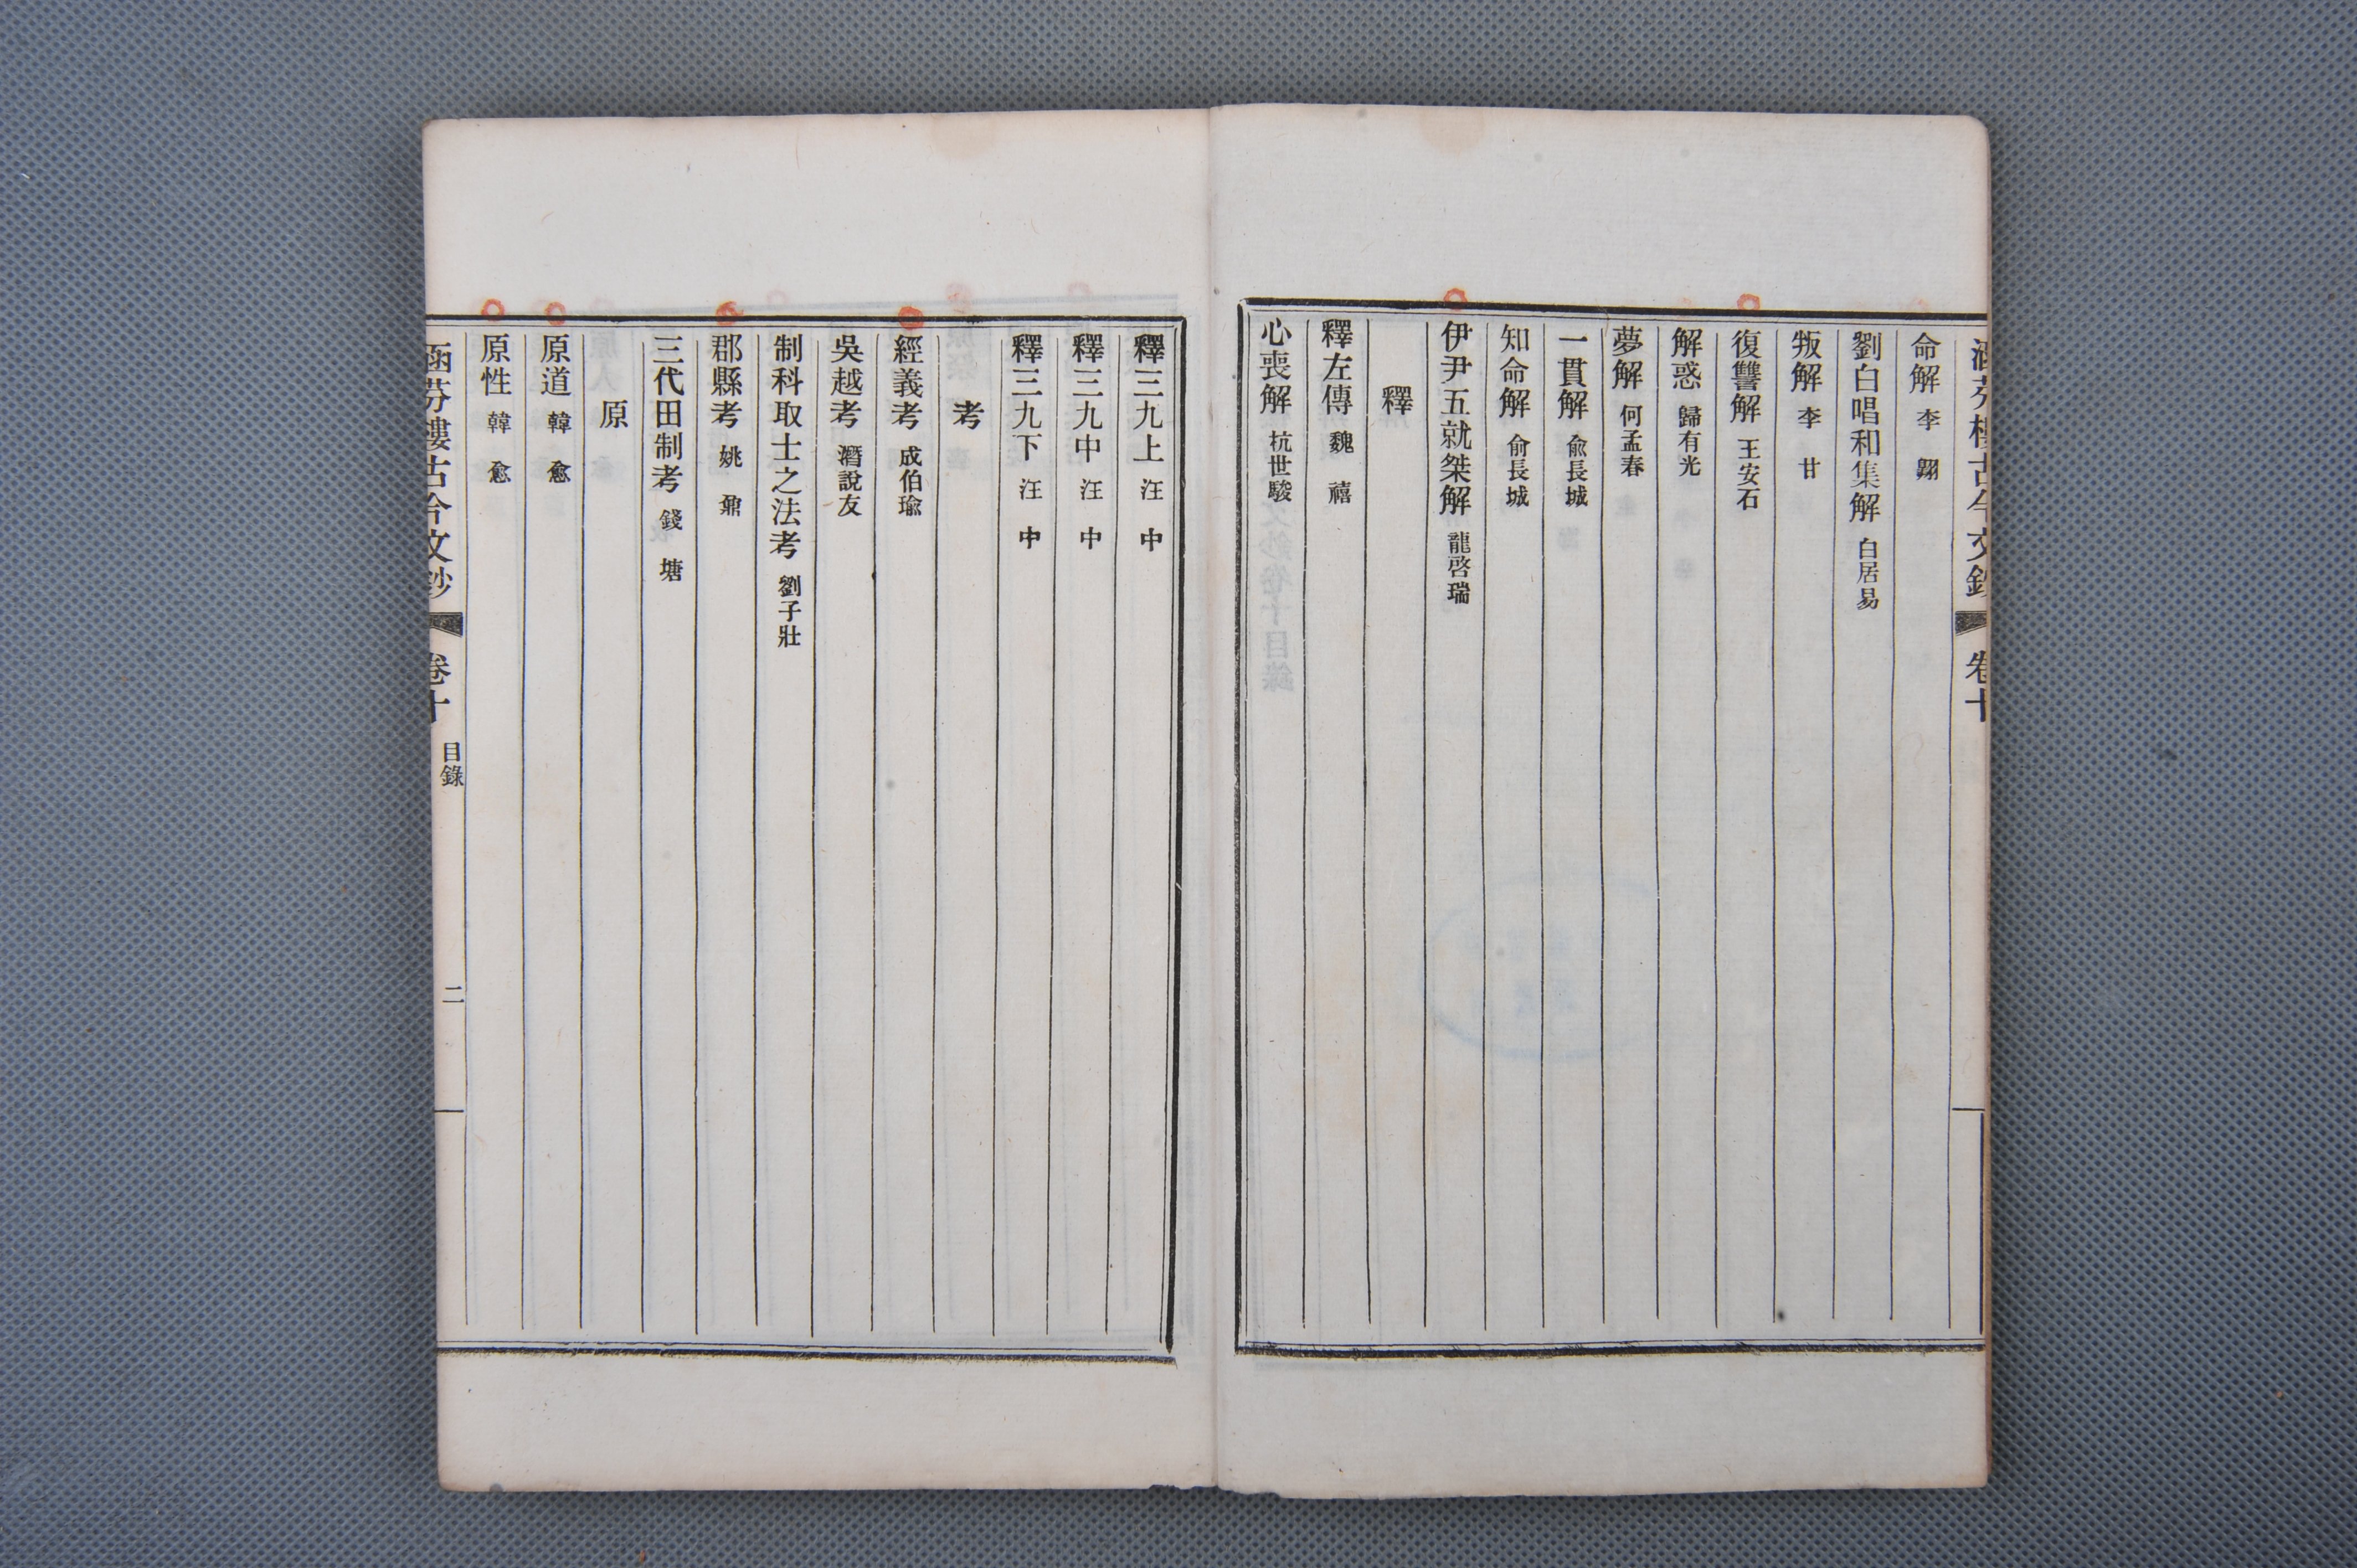 涵芬樓古今文鈔 卷十
命解 李翺
劉白唱和集解 白居易
叛解 李甘
復讐解 王安石
解惑 歸有光
夢解 何孟春
一貫解 兪長城
知命解 俞長城
伊尹五就桀解 龍啓瑞
釋
釋左傳 魏禧
心喪解 杭世駿
釋三九上 汪中
釋三九中 汪中
釋三九下 汪中
考
經義考 成伯瑜
吳越考 潛說友
制科取士之法考 劉子壯
郡縣考 姚鼐
三代田制考 錢塘
原
原道 韓愈
原性 韓愈
涵芬樓古今文鈔 卷十 目錄 二